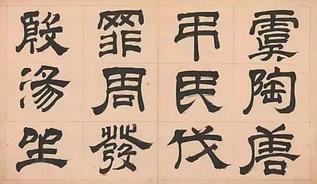 虞陶唐
弔民伐
罪周發
殷湯坐